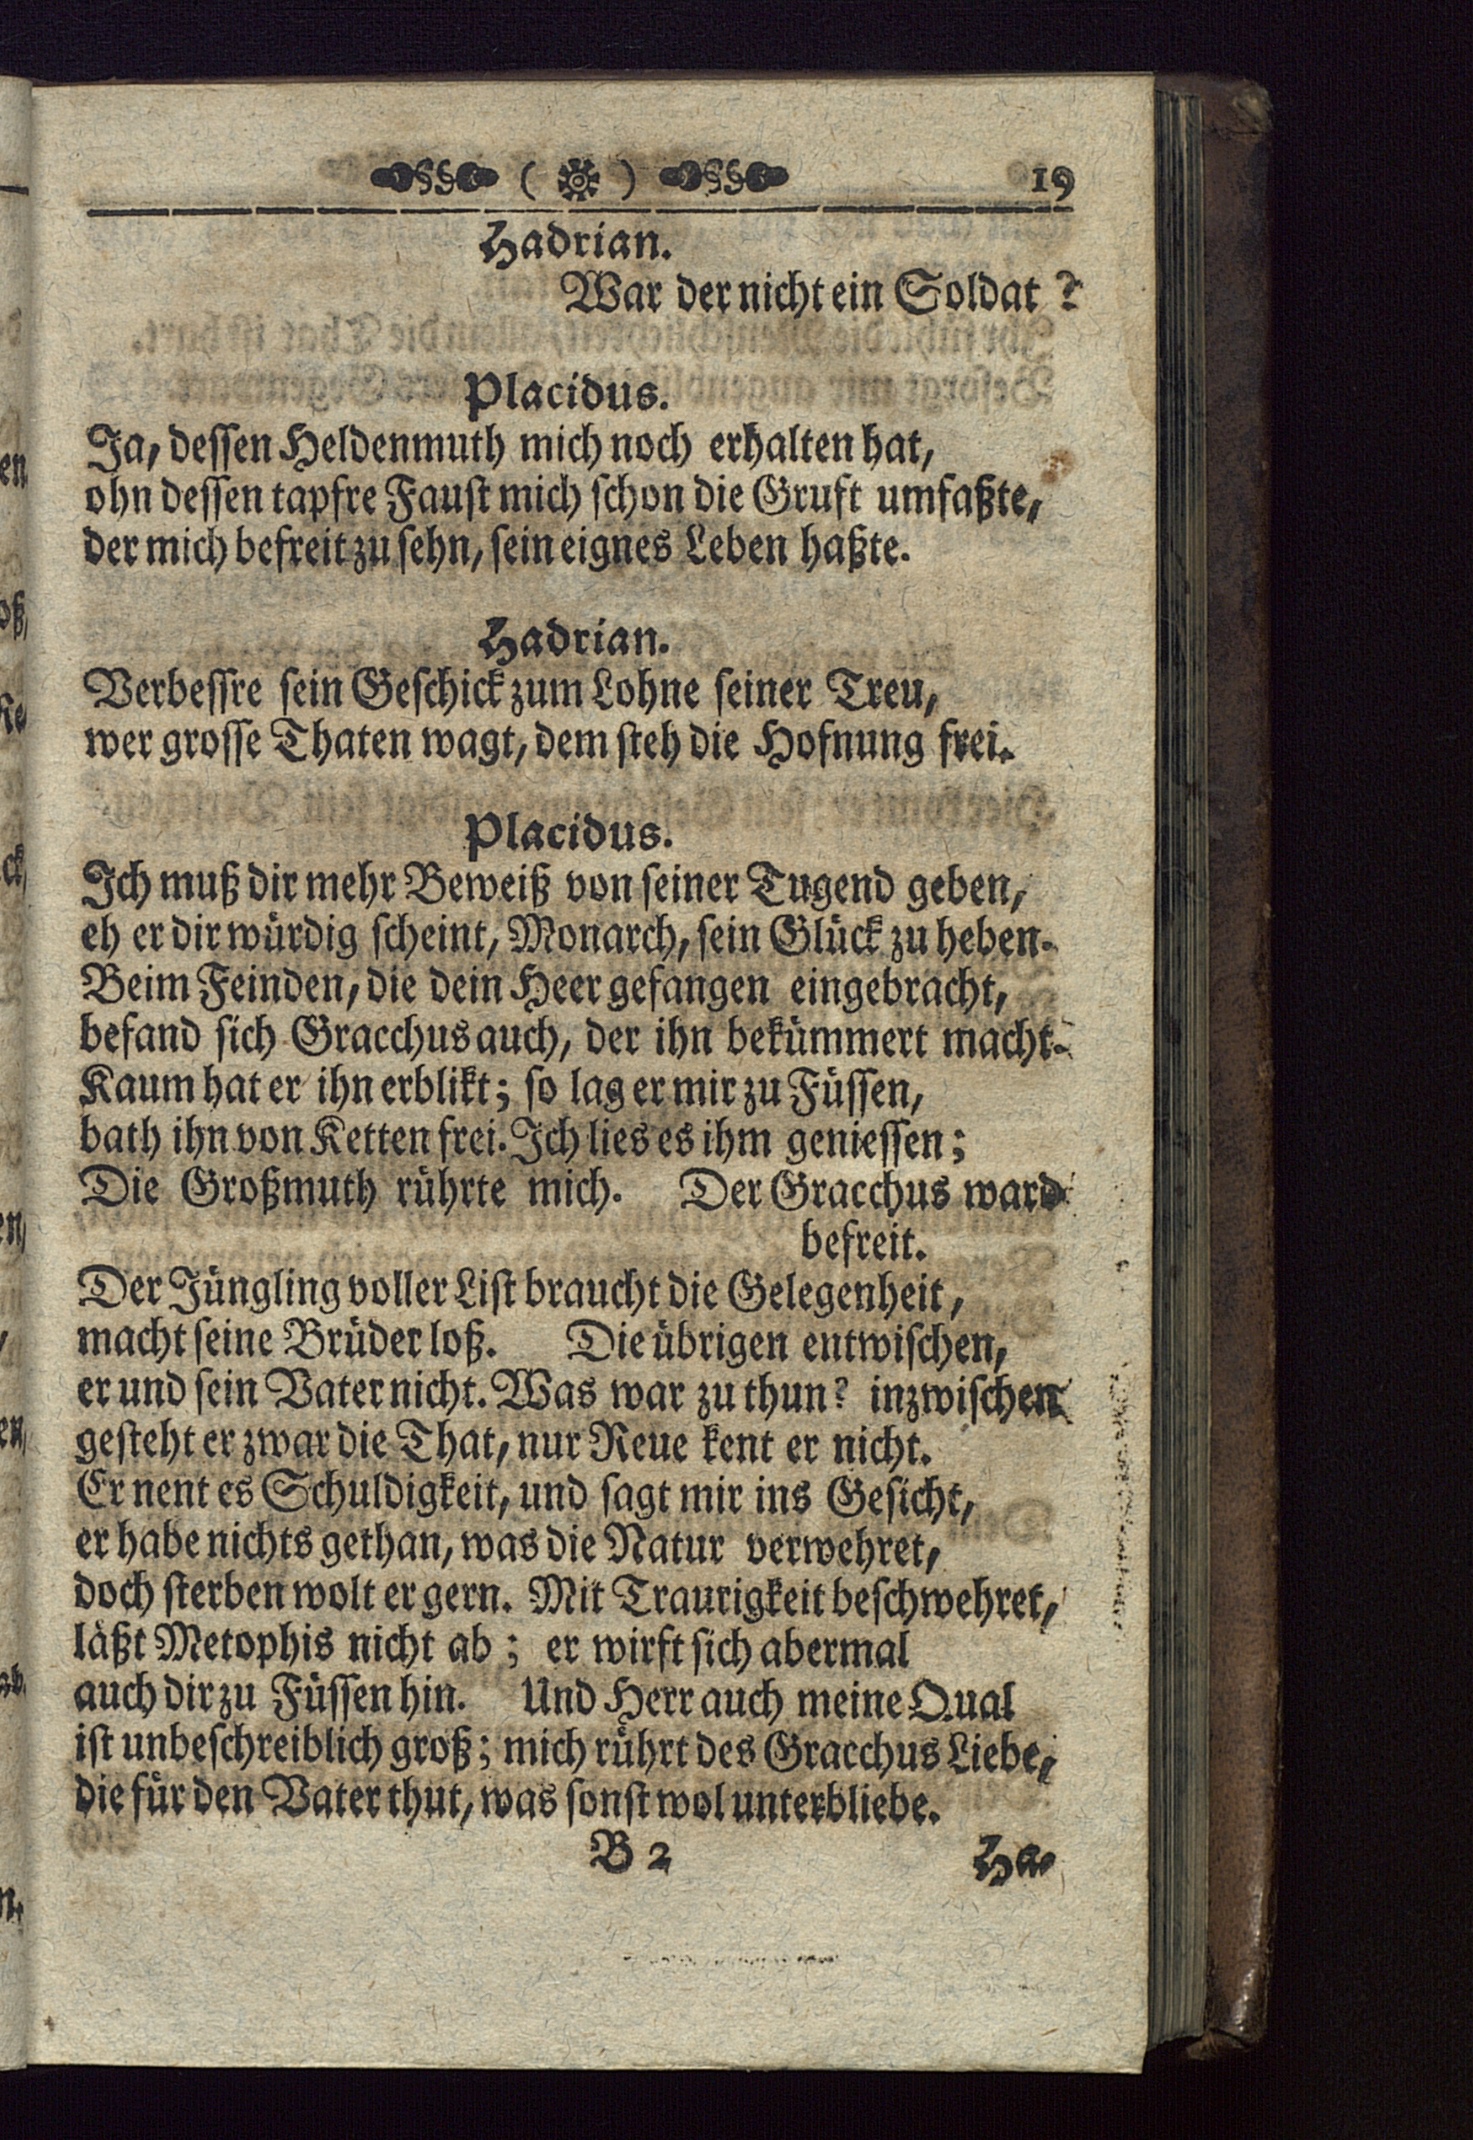 ( ) 19
Hadrian.
War der nicht ein Soldat?
Placidus.
Ja, dessen Heldenmuth mich noch erhalten hat,
ohn dessen tapfre Faust mich schon die Gruft umfaßte,
der mich befreit zu sehn, sein eignes Leben haßte.
Hadrian.
Verbessre sein Geschick zum Lohne seiner Treu,
wer grosse Thaten wagt, dem steh die Hofnung frei.
Placidus.
Ich muß dir mehr Beweiß von seiner Tugend geben,
eh er dir würdig scheint, Monarch, sein Glück zu heben.
Beim Feinden, die dein Heer gefangen eingebracht,
befand sich Gracchus auch, der ihn bekümmert macht.
Kaum hat er ihn erblikt; so lag er mir zu Füssen,
bath ihn von Ketten frei. Ich lies es ihm geniessen;
Die Großmuth rührte mich. Der Gracchus ward
befreit.
Der Jüngling voller List braucht die Gelegenheit,
macht seine Brüder loß. Die übrigen entwischen,
er und sein Vater nicht. Was war zu thun? inzwischen
gesteht er zwar die That, nur Reue kent er nicht.
Er nent es Schuldigkeit, und sagt mir ins Gesicht,
er habe nichts gethan, was die Natur verwehret,
doch sterben wolt er gern. Mit Traurigkeit beschwehret,
läßt Metophis nicht ab; er wirft sich abermal
auch dir zu Füssen hin. Und Herr auch meine Qual
ist unbeschreiblich groß; mich rührt des Gracchus Liebe,
die für den Vater thut, was sonst wol unterbliebe.
B 2 Ha-